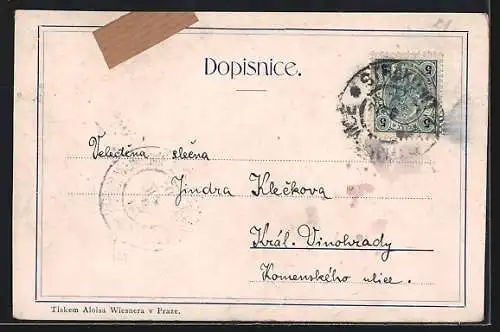 Dopisnice.
5 5
Velectěna slečna
Jindra Klečkova
Král. Vinohrady
Komenského ulice.
Tiskem Aloisa Wiesnera v Praze.